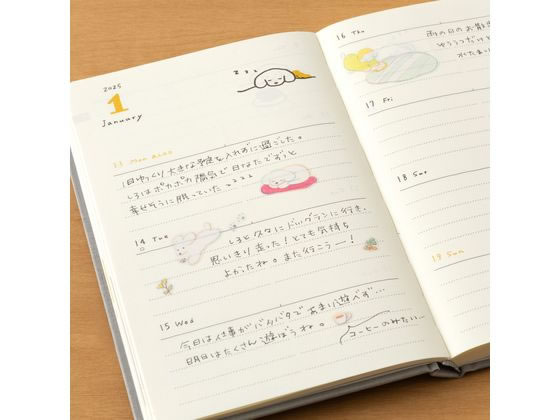 2025
1
January
zzz
13 Mon
1日ゆっくり大きな予定を入れずに過ごした。
しろはポカポカ陽気で日なたでずっと
幸せそうに眠っていた。
14 Tue
しろと久々にドッグランに行き、
思いきり走った！とても気持ち
よかったね。また行こうー！
15 Wed
今日は仕事がバタバタであまり遊べず…
明日はたくさん遊ぼうね。
コーヒーのみたい…
16 Thu
雨の日のお散
17 Fri
18 Sat
19 Sun